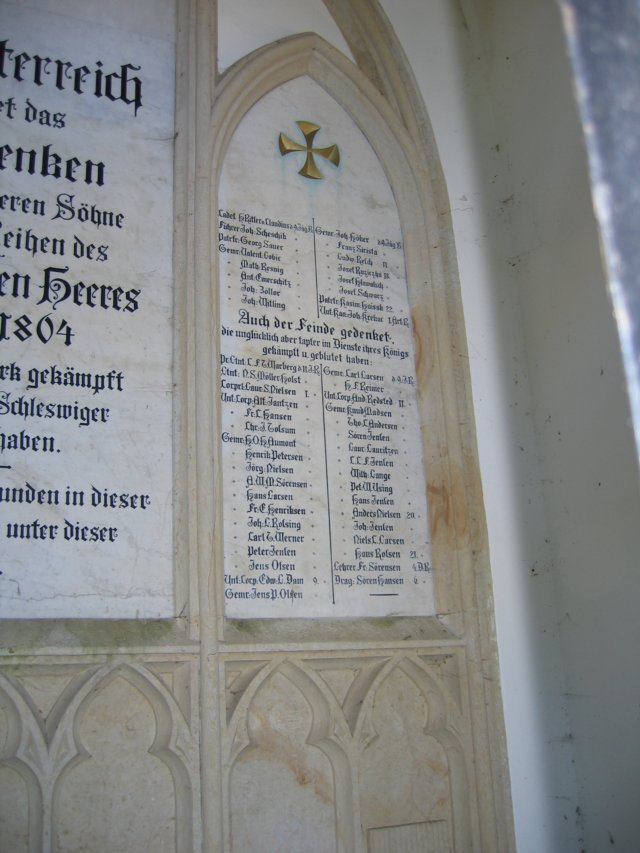 terreich
et das
nken
eren Söhne
eihen des
en Heeres
1864
rk gekämpft
Schleswiger
haben.
unden in dieser
unter dieser
Führer Joh. Scheschik
Patrfr. Georg Sauer
Gemr. Valent. Lobie
Math. Resnig
Ant. Emerschitz
Joh. Zoller
Joh. Willing
Gemr. Joh. Höher
Franz Sirista
Ludw. Reich 11.
Josef Schwarz
Auch der Feinde gedenket,
die unglücklich aber tapfer im Dienste ihres Königs
gekämpft u. geblutet haben:
Ltnt. N.S. Möller Holst
Corprl. Laur. S. Nielsen 1.
Unt. Corp. Alf. Jantzen
Fr. C. Hansen
Chr. J. Tolsum
Gemr. H.O. Haumont
Henrik Petersen
Jörg. Nielsen
A.W.M. Sörensen
Hans Larsen
Fr. E. Henriksen
Joh. L. Rolsing
Carl T. Werner
Peter Jenlen
Jens Olsen
Unt. Corp. Edw. L. Dam 9.
Gemr. Jens P. Olsen
Gemr. Carl Larsen
H.F. Reimer
Unt. Corp. And. Redsted 11.
Gemr. Knud Madsen
Tho. C. Andersen
Sören Jenlen
Laur. Lauritzen
C.C.F. Jenlen
Wilh. Lange
Pet. W. Using
Hans Jenlen
Anders Nielsen 20.
Joh. Jenlen
Niels C. Larsen
Hans Rolsen 21.
Lehrer Fr. Sörensen 4. D.R.
Drag. Sören Hansen 6.